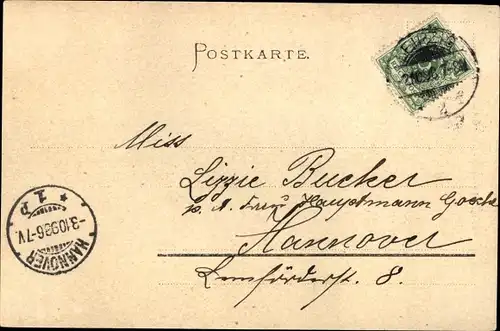 POSTKARTE.
Miss
Lizzie Bucker
p. A. Frau Hauptmann
Hannover
Lemförderst. 8.
HANNOVER
-3.10.98.6-7V.
* 1.p